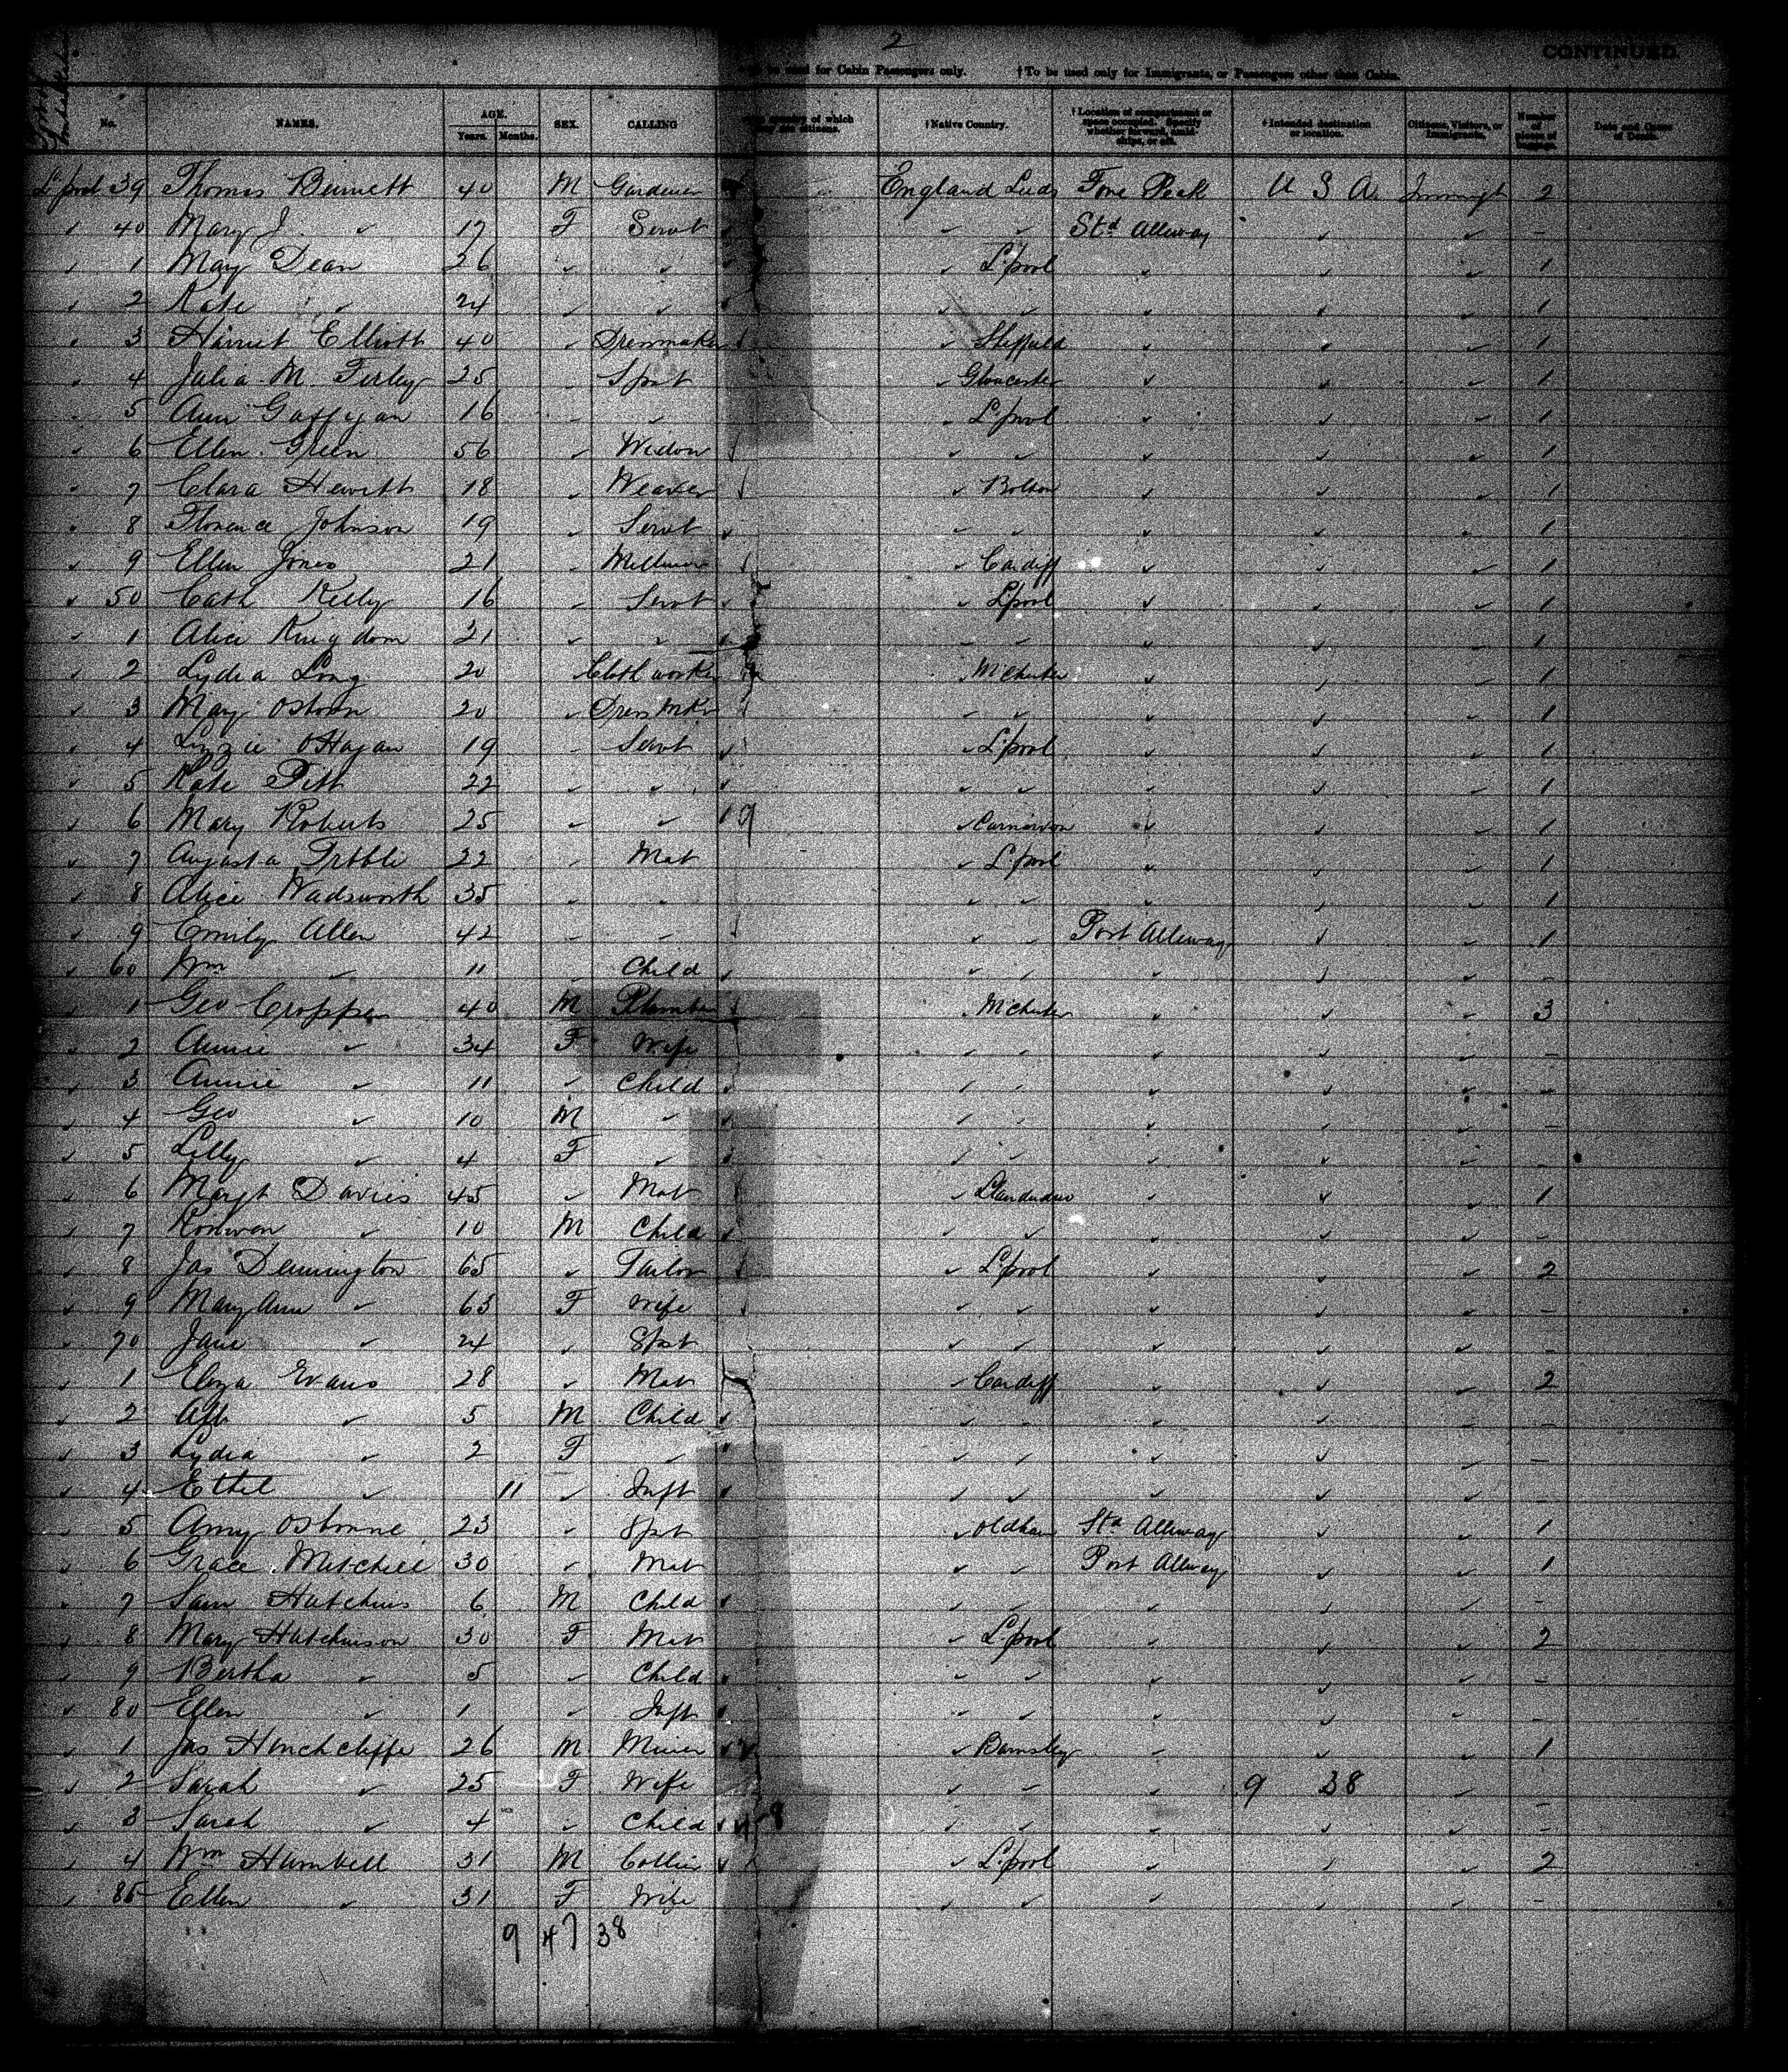 2
CONTINUED.
be used for Cabin Passengers only. †To be used only for Immigrants, or Passengers other than Cabin.
No. NAMES. AGE. Years. Months. SEX. CALLING country of which they are citizens. †Native Country. †Location of compartment or space occupied. Specify whether forward, amidships, or aft. †Intended destination or location. Citizens, Visitors, or Immigrants. Number of pieces of baggage. Date and Cause of Death.
L'pool 39 Thomas Bennett 40 M Gardener England Leeds Fore Peak U S A 2
40 Mary J. ✓ 17 F Servt ✓ ✓ Std Alleway ✓ ✓ -
1 Mary Dean 26 ✓ ✓ ✓ L'pool ✓ ✓ ✓ 1
2 Kate ✓ 24 ✓ ✓ ✓ ✓ ✓ ✓ ✓ 1
3 Harriet Elliott 40 ✓ Dressmaker ✓ Sheffield ✓ ✓ ✓ 1
4 Julia M. 25 Spst ✓ Gloucester ✓ ✓ ✓ 1
5 Ann Gaffigan 16 ✓ ✓ ✓ L'pool ✓ ✓ ✓ 1
6 Ellen Green 56 ✓ Widow ✓ ✓ ✓ ✓ ✓ 1
7 Clara Hewitt 18 ✓ Weaver ✓ Bolton ✓ ✓ ✓ 1
8 Florence Johnson 19 ✓ Servt ✓ ✓ ✓ ✓ ✓ 1
9 Ellen Jones 21 ✓ Milliner ✓ Cardiff ✓ ✓ ✓ 1
50 Cath Kelly 16 ✓ Servt ✓ L'pool ✓ ✓ ✓ 1
1 Alice Kingdom 21 ✓ ✓ ✓ ✓ ✓ ✓ ✓ 1
2 Lydia Long 20 ✓ Cloth worker ✓ M'chester ✓ ✓ ✓ 1
3 Mary Osborn 20 ✓ Dress Mkr ✓ ✓ ✓ ✓ ✓ 1
4 Lizzie O'Hagan 19 ✓ Servt ✓ L'pool ✓ ✓ ✓ 1
5 Kate Pitt 22 ✓ ✓ ✓ ✓ ✓ ✓ ✓ 1
6 Mary Roberts 25 ✓ ✓ 19 ✓ Carnarvon ✓ ✓ ✓ 1
7 Augusta Tribble 22 ✓ Mat ✓ L'pool ✓ ✓ ✓ 1
8 Alice Wadsworth 35 ✓ ✓ ✓ ✓ ✓ ✓ ✓ 1
9 Emily Allen 42 ✓ ✓ ✓ ✓ Port Alleway ✓ ✓ 1
60 Wm ✓ 11 ✓ Child ✓ ✓ ✓ ✓ ✓ -
1 Geo Cropper 40 M Plumber ✓ M'chester ✓ ✓ ✓ 3
2 Annie ✓ 34 F Wife ✓ ✓ ✓ ✓ ✓ -
3 Annie ✓ 11 ✓ Child ✓ ✓ ✓ ✓ ✓ -
4 Geo ✓ 10 M ✓ ✓ ✓ ✓ ✓ ✓ -
5 Lilly ✓ 4 F ✓ ✓ ✓ ✓ ✓ ✓ -
6 Margt Davies 45 ✓ Mat ✓ Llandudno ✓ ✓ ✓ 1
7 ✓ 10 M Child ✓ ✓ ✓ ✓ ✓ -
8 Jas Dennington 65 ✓ Tailor ✓ L'pool ✓ ✓ ✓ 2
9 Mary Ann ✓ 63 F Wife ✓ ✓ ✓ ✓ ✓ -
70 Jane ✓ 24 ✓ Spst ✓ ✓ ✓ ✓ ✓ -
1 Eliza Evans 28 ✓ Mat ✓ Cardiff ✓ ✓ ✓ 2
2 Alf ✓ 5 M Child ✓ ✓ ✓ ✓ ✓ -
3 Lydia ✓ 2 F ✓ ✓ ✓ ✓ ✓ ✓ -
4 Ethel ✓ 11 ✓ Inft ✓ ✓ ✓ ✓ ✓ -
5 Amy Osborne 23 ✓ Spst ✓ Oldham Std Alleway ✓ ✓ 1
6 Grace Mitchell 30 ✓ Mat ✓ ✓ Port Alleway ✓ ✓ 1
7 Sam Hutchins 6 M Child ✓ ✓ ✓ ✓ ✓ -
8 Mary Hutchinson 30 F Mat ✓ L'pool ✓ ✓ ✓ 2
9 Bertha ✓ 5 ✓ Child ✓ ✓ ✓ ✓ ✓ -
80 Ellen ✓ 1 ✓ Inft ✓ ✓ ✓ ✓ ✓ -
1 Jas Hinchcliffe 26 M Miner ✓ Barnsley ✓ ✓ ✓ 1
2 Sarah ✓ 25 F Wife ✓ ✓ ✓ 9 38 ✓ -
3 Sarah ✓ 4 ✓ Child ✓ ✓ ✓ ✓ ✓ -
4 Wm Humbell 31 M Collier ✓ L'pool ✓ ✓ ✓ 2
85 Ellen ✓ 31 F Wife ✓ ✓ ✓ ✓ ✓ -
9 47 38